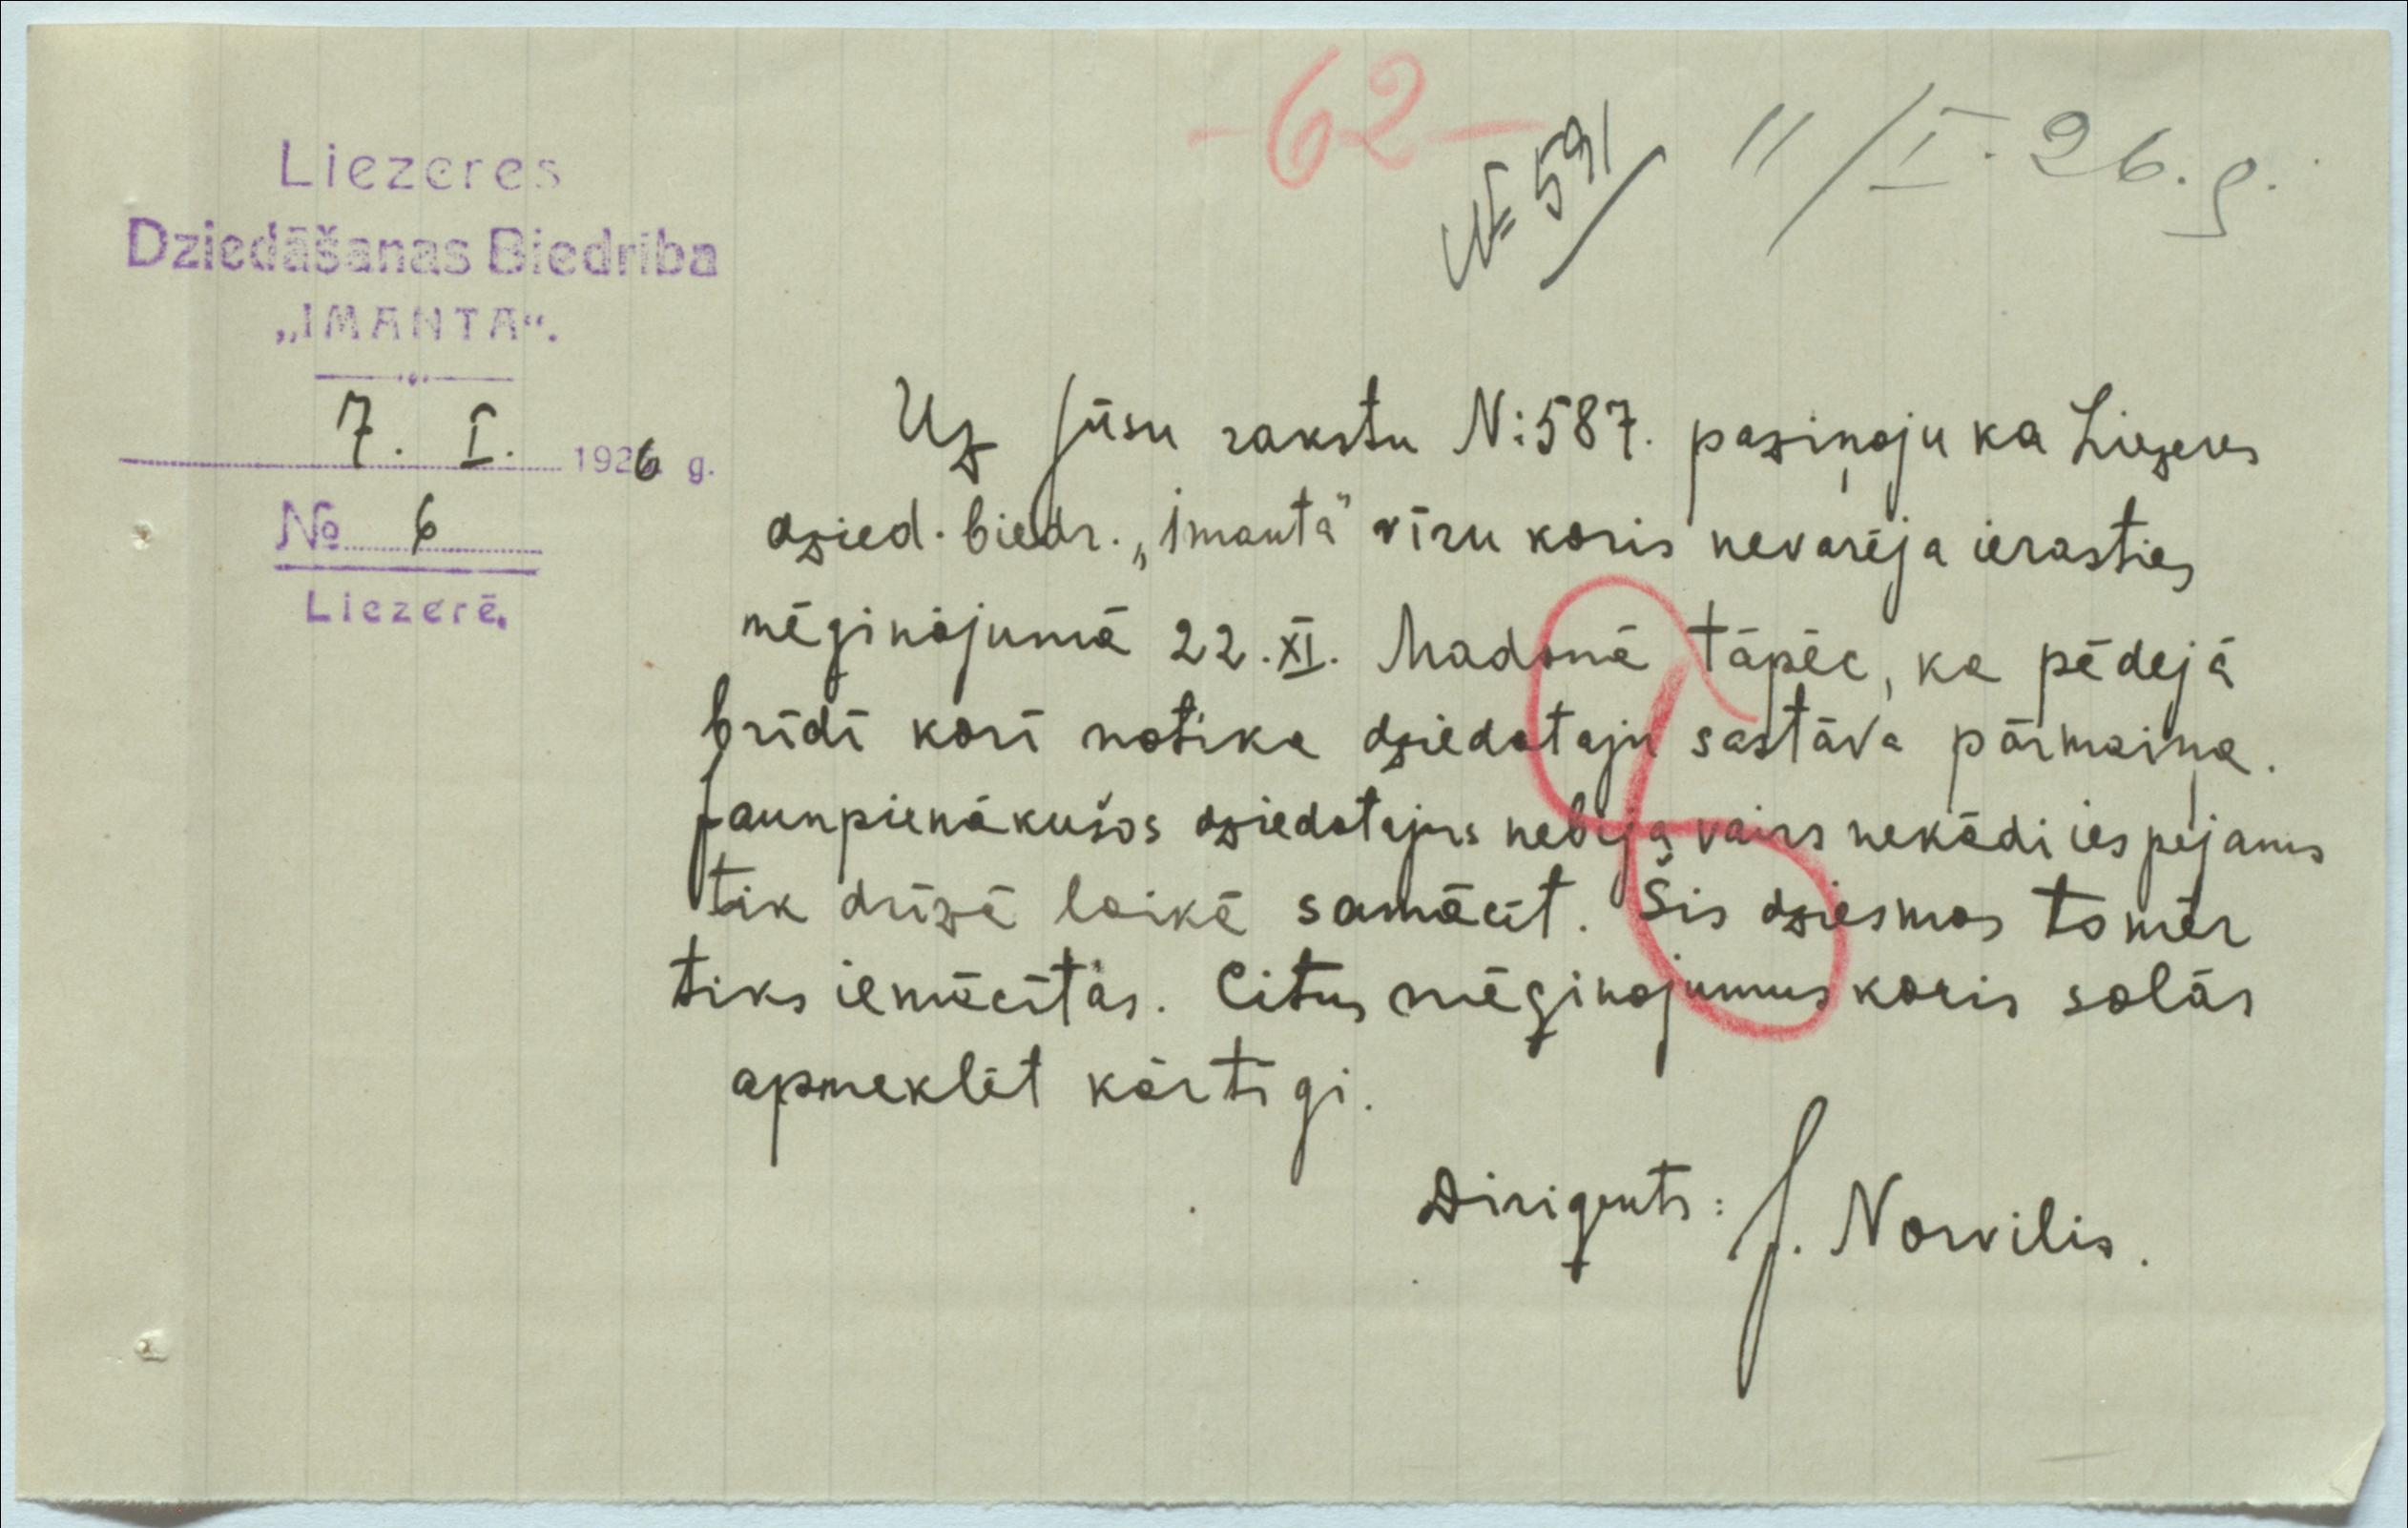 -62-
№ 591
11/I. 26. g.
Liezeres
Dziedāšanas Biedrība
„IMANTA“.
7. I. 1926 g.
№ 6
Liezerē.
Uz Jūsu rakstu N:587. paziņoju ka Liezeres
dzied. biedr. „Imanta" vīru koris nevarēja ierasties
mēginājumā 22.XI. Madonā tāpēc, ka pēdejā
brīdī korī notika dziedataju sastāva pārmaiņa.
Jaunpienākušos dziedatajus nebija vairs nekādi iespejams
tik drīzā laikā samācīt. Šis dziesmas tomēr
tiks iemācītas. Citus mēginajumus koris solās
apmeklēt kārtīgi.
Dirigents: J. Norvilis.